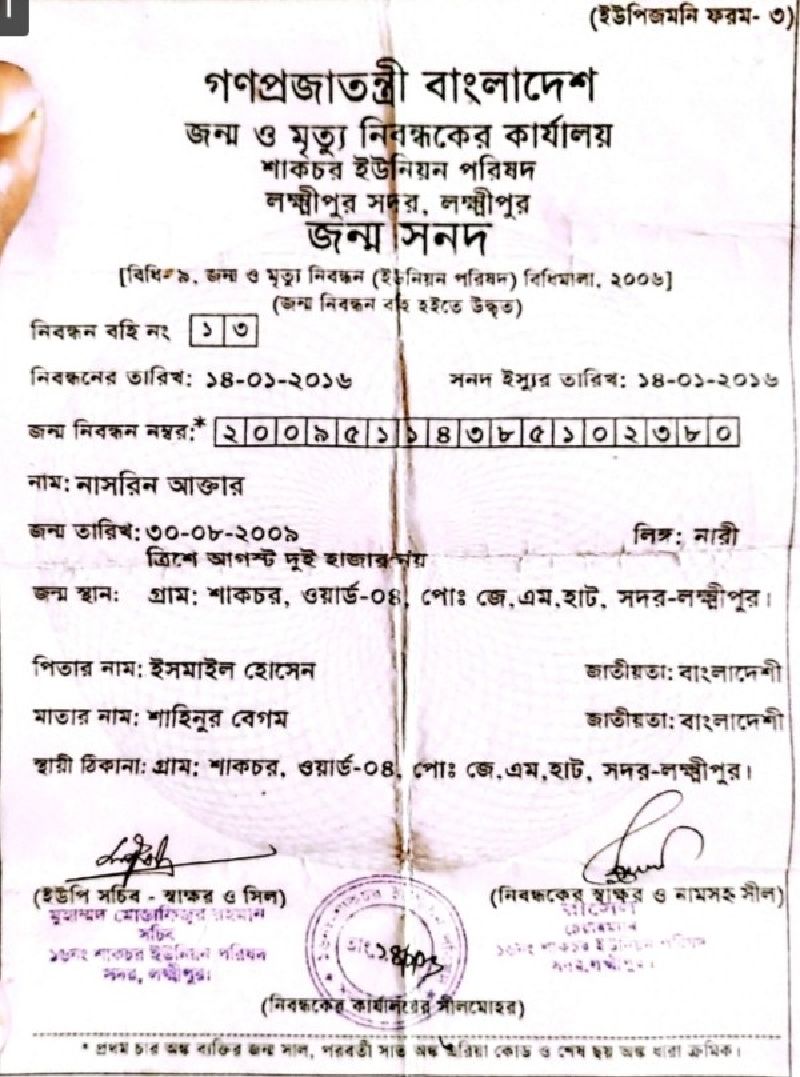 (ইউপিজমনি ফরম- ৩)
গণপ্রজাতন্ত্রী বাংলাদেশ
জন্ম ও মৃত্যু নিবন্ধকের কার্যালয়
শাকচর ইউনিয়ন পরিষদ
লক্ষ্মীপুর সদর, লক্ষ্মীপুর
জন্ম সনদ
[বিধি-৯, জন্ম ও মৃত্যু নিবন্ধন (ইউনিয়ন পরিষদ) বিধিমালা, ২০০৬]
(জন্ম নিবন্ধন বহি হইতে উদ্ধৃত)
নিবন্ধন বহি নং ১৩
নিবন্ধনের তারিখ: ১৪-০১-২০১৬ সনদ ইস্যুর তারিখ: ১৪-০১-২০১৬
জন্ম নিবন্ধন নম্বর:* ২০০৯৫১১৪৩৮৫১০২৩৮০
নাম: নাসরিন আক্তার
জন্ম তারিখ: ৩০-০৮-২০০৯ লিঙ্গ: নারী
ত্রিশে আগস্ট দুই হাজার নয়
জন্ম স্থান: গ্রাম: শাকচর, ওয়ার্ড-০৪, পোঃ জে,এম,হাট, সদর-লক্ষ্মীপুর।
পিতার নাম: ইসমাইল হোসেন জাতীয়তা: বাংলাদেশী
মাতার নাম: শাহিনুর বেগম জাতীয়তা: বাংলাদেশী
স্থায়ী ঠিকানা: গ্রাম: শাকচর, ওয়ার্ড-০৪, পোঃ জে,এম,হাট, সদর-লক্ষ্মীপুর।
(ইউপি সচিব - স্বাক্ষর ও সিল) (নিবন্ধকের স্বাক্ষর ও নামসহ সীল)
সচিব
১৬নং শাকচর ইউনিয়ন পরিষদ
সদর, লক্ষ্মীপুর।
১৬নং শাকচর ইউনিয়ন পরিষদ
সদর, লক্ষ্মীপুর।
(নিবন্ধকের কার্যালয়ের সীলমোহর)
* প্রথম চার অঙ্ক ব্যক্তির জন্ম সাল, পরবর্তী সাত অঙ্ক এরিয়া কোড ও শেষ ছয় অঙ্ক ধারা ক্রমিক।